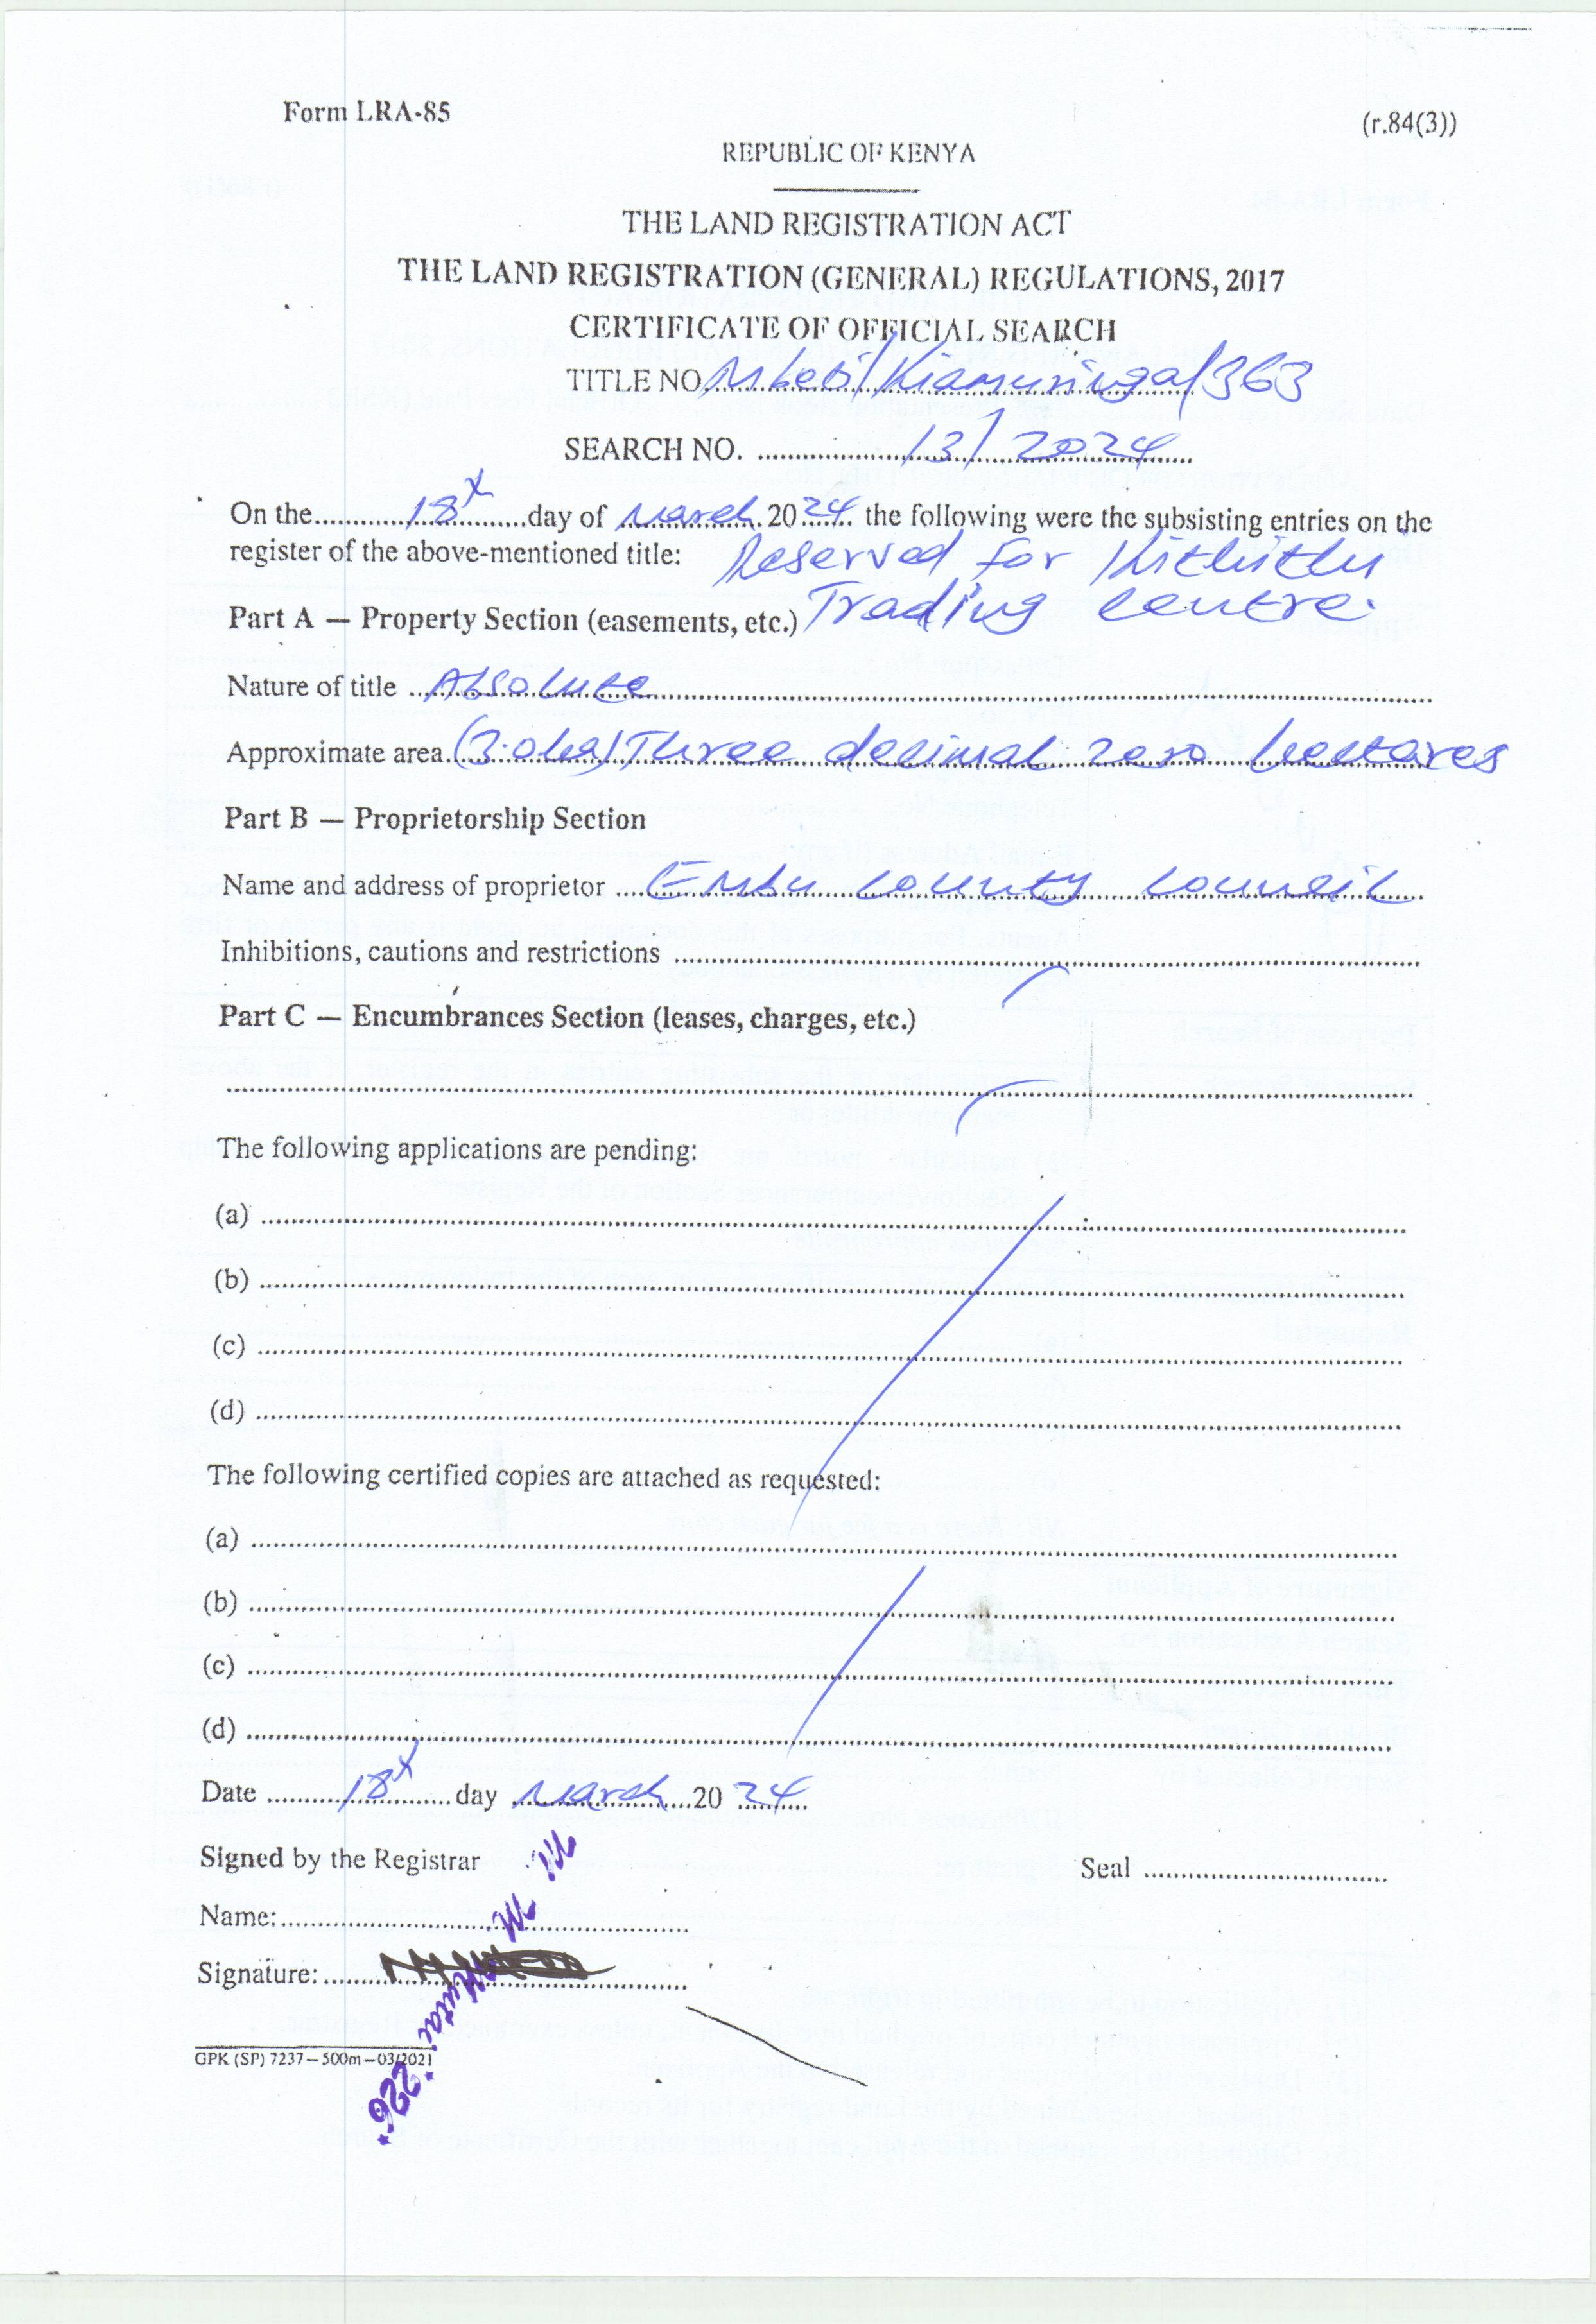 Form LRA-85
(r.84(3))
REPUBLIC OF KENYA
THE LAND REGISTRATION ACT
THE LAND REGISTRATION (GENERAL) REGULATIONS, 2017
CERTIFICATE OF OFFICIAL SEARCH
TITLE NO. Mbeti/Kiamuringa/363
SEARCH NO. 13/2024
On the 18th day of March 2024 the following were the subsisting entries on the
register of the above-mentioned title: Reserved for Kithithu
Part A — Property Section (easements, etc.) Trading centre.
Nature of title Absolute
Approximate area (3.0ha) Three decimal zero hectares
Part B — Proprietorship Section
Name and address of proprietor Embu County Council
Inhibitions, cautions and restrictions
Part C — Encumbrances Section (leases, charges, etc.)
The following applications are pending:
(a)
(b)
(c)
(d)
The following certified copies are attached as requested:
(a)
(b)
(c)
(d)
Date 18th day March 2024
Signed by the Registrar
Seal
Name:
Signature:
Mutai
*226*
GPK (SP) 7237—500m—03/2021